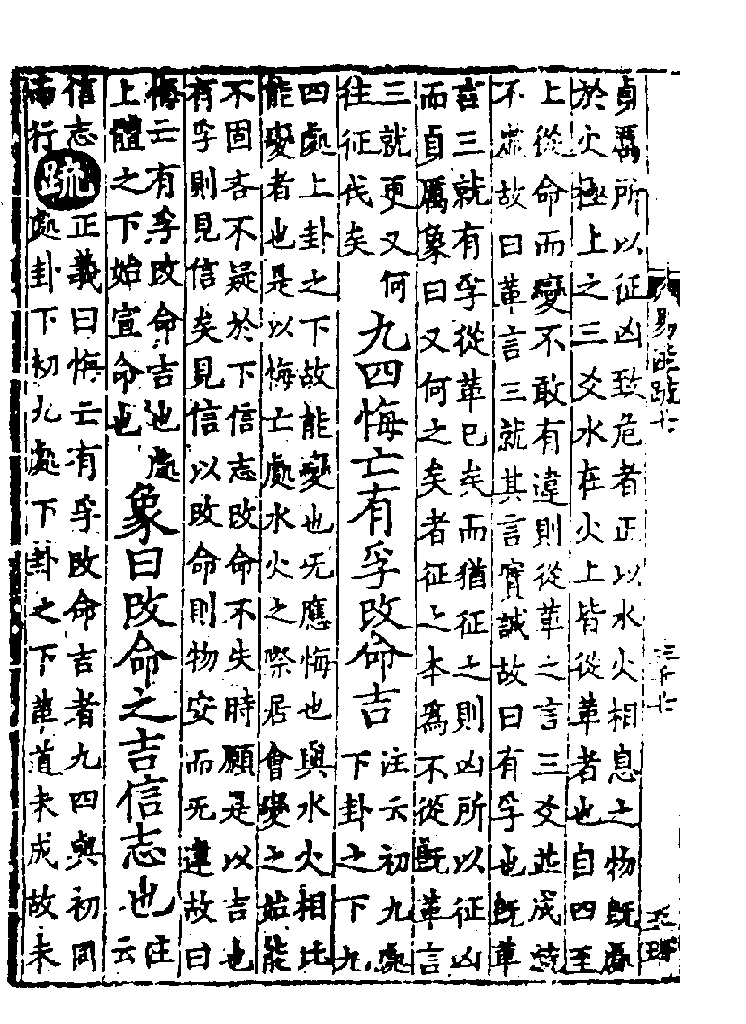 貞厲所以征凶致危者正以水火相息之物既處
於火極上之三爻水在火上皆從革者也自四至
上從命而變不敢有違則從革之言三爻並成就
不虚故曰革言三就其言實誠故曰有孚也既革
言三就有孚從革已矣而猶征之則凶所以征凶
而貞厲象曰又何之矣者征之本爲不從既革言
三就更又何
往征伐矣
九四悔亡有孚改命吉
注云初九處
下卦之下九
四處上卦之下故能變也无應悔也與水火相比
能變者也是以悔亡處水火之際居會變之始能
不固吝不疑於下信志改命不失時願是以吉也
有孚則見信矣見信以改命則物安而无違故曰
悔亡有孚改命吉也處
上體之下始宣命也
象曰改命之吉信志也
注
云
信志
而行
疏
正義曰悔亡有孚改命吉者九四與初同
處卦下初九處下卦之下革道未成故未